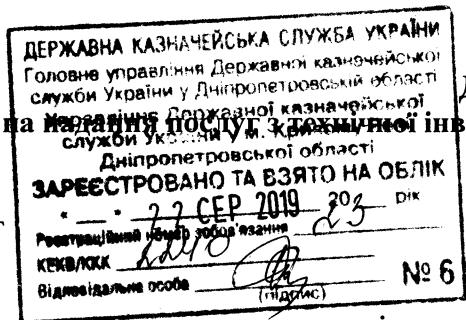 ДЕРЖАВНА КАЗНАЧЕЙСЬКА СЛУЖБА УКРАЇНИ
Головне управління Державної казначейської
служби України у Дніпропетровській області
Управління Державної казначейської
на надання послуг з технічної інв
служби України у м.
Дніпропетровської області
ЗАРЕЄСТРОВАНО ТА ВЗЯТО НА ОБЛІК
" __ " 22 СЕР 2019 20 рік
Реєстраційний номер зобов'язання 23
КЕКВ/ККК 2240
Відповідальна особа
(підпис)
№ 6